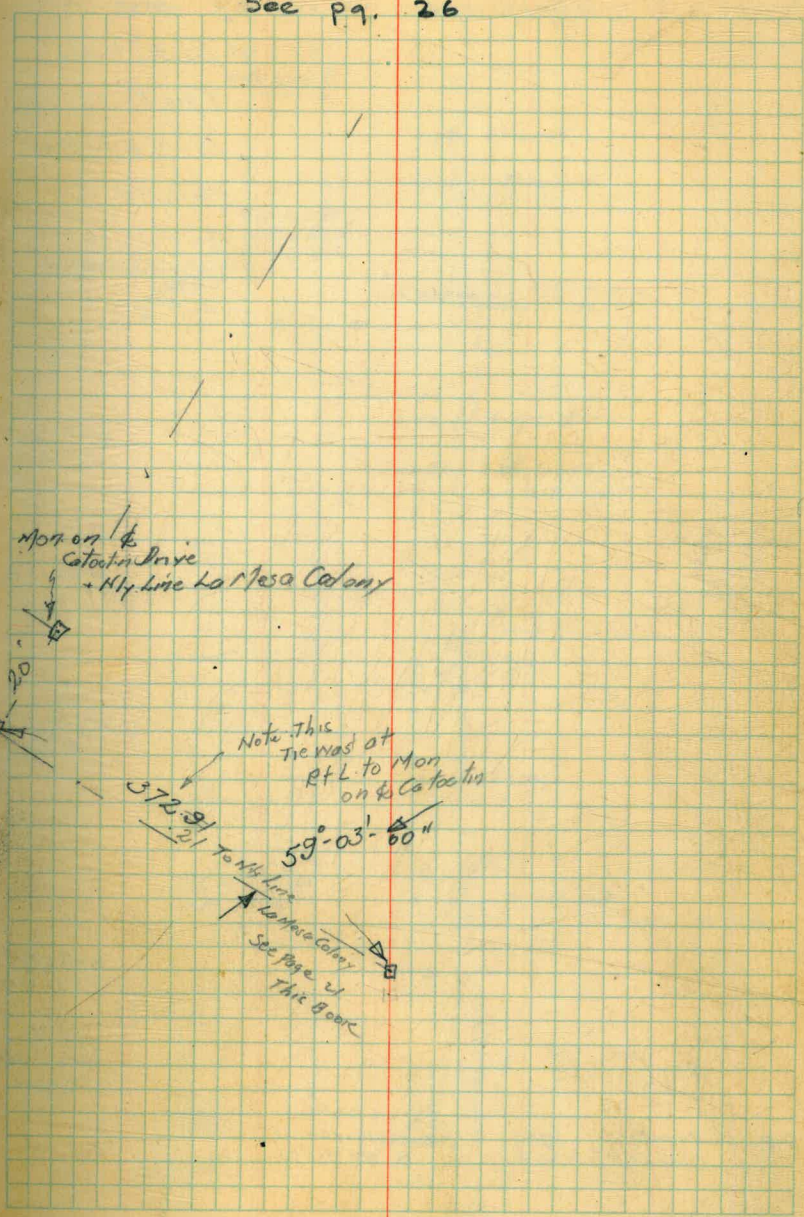 See pg. 26
Mon on ₵
Catoctin Drive
+ Nly Line La Mesa Colony
20"
Note This
Tie was at
Rt L to Mon
on ₵ Catoctin
372.91
.21 To Nly Line
La Mesa Colony
59°-03'-00"
See Page 21
This Book